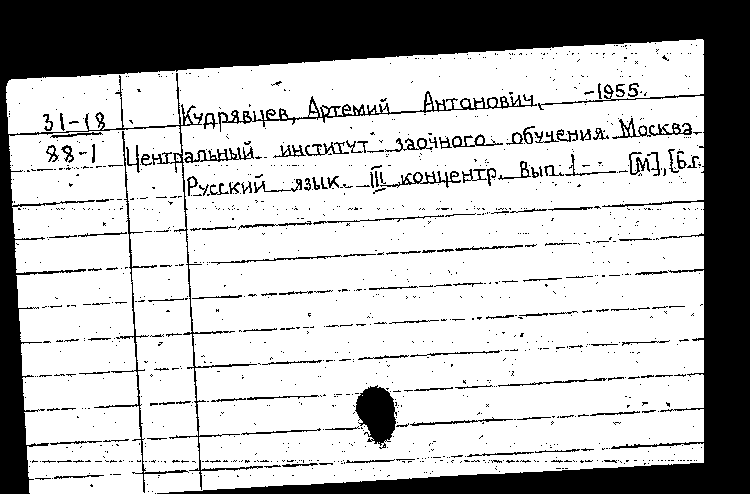 31-18 Кудрявцев, Артемий Антонович, -1955.
88-1 Центральный институт заочного обучения. Москва
Русский язык. III концентр. Вып. 1- [М], [б.г.]